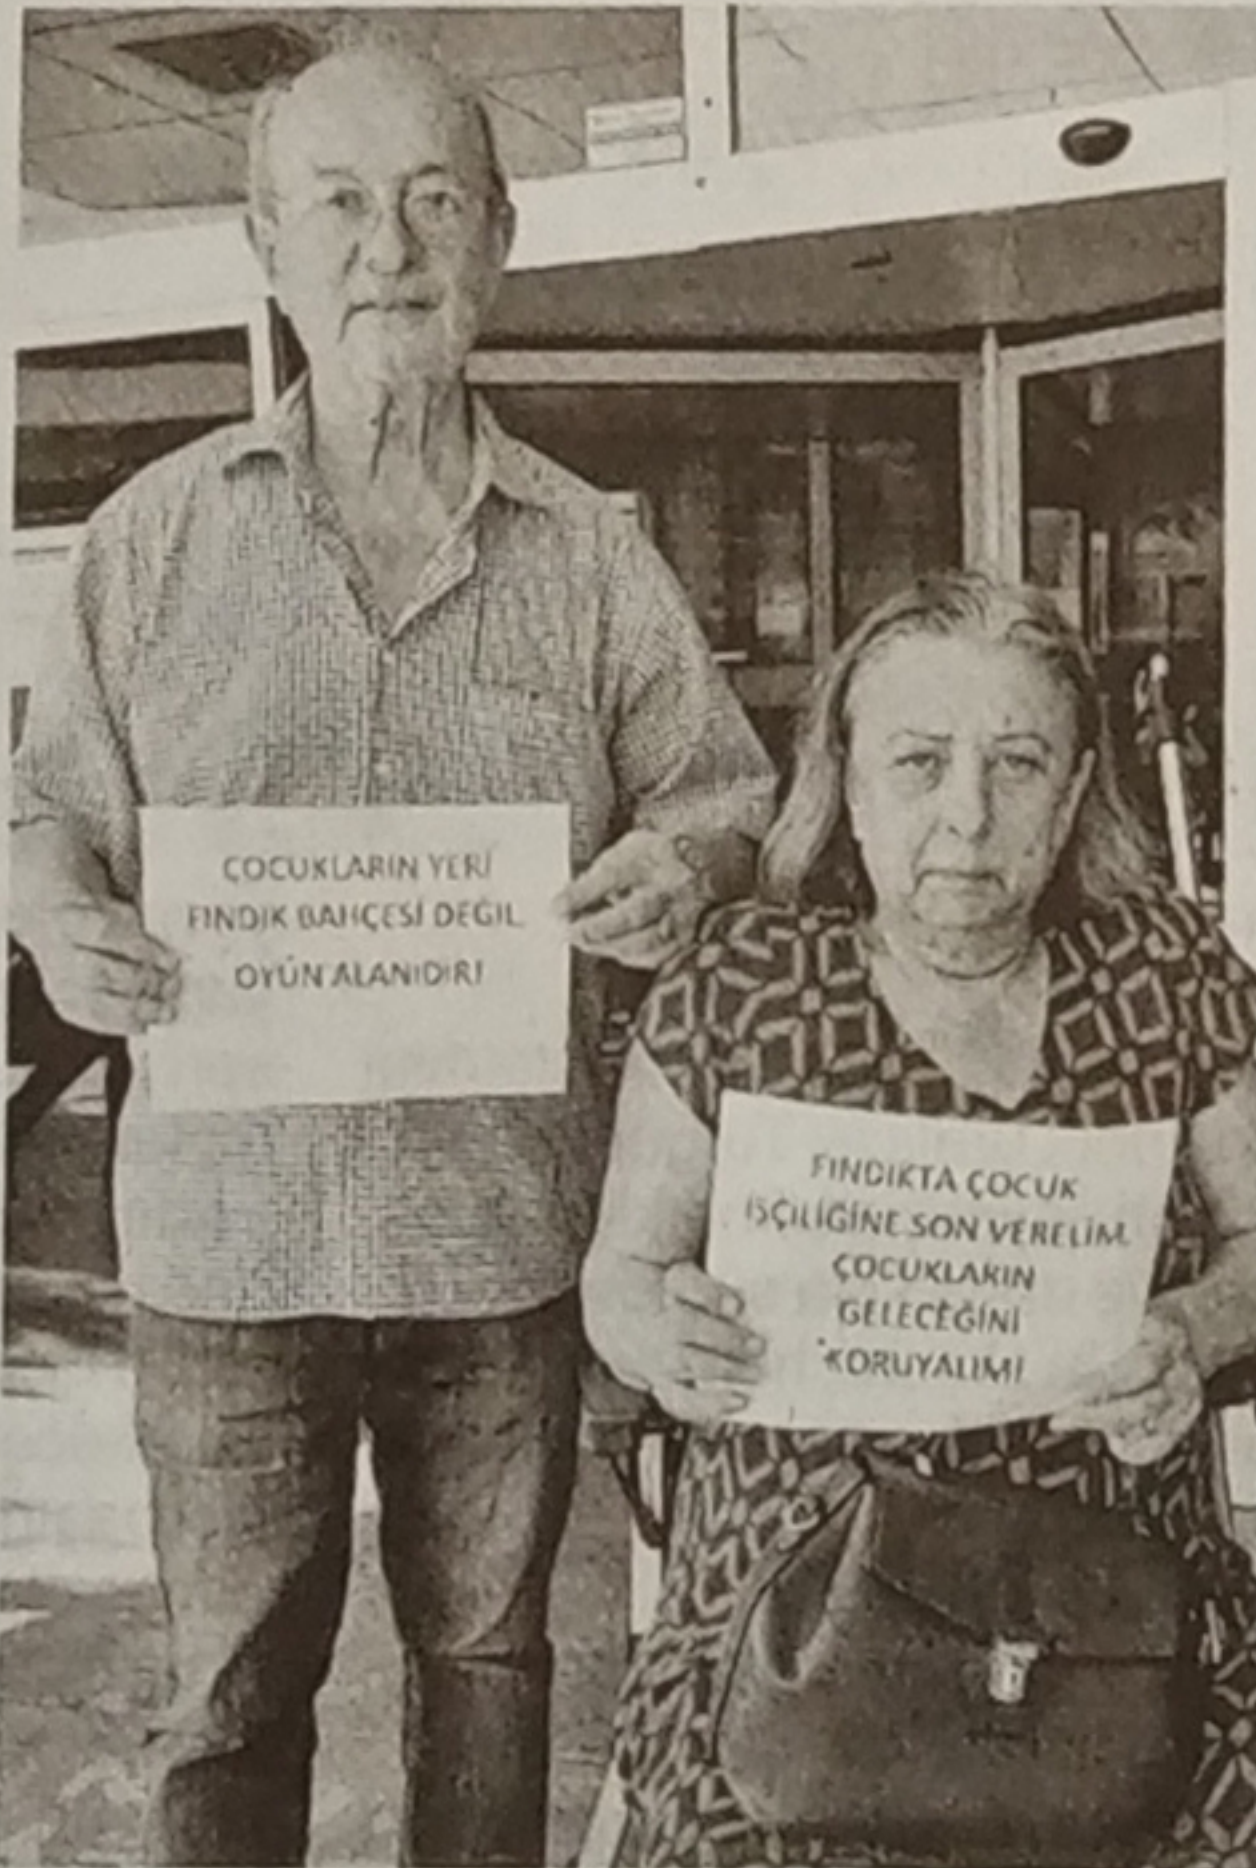 ÇOCUKLARIN YERİ
FINDIK BAHÇESİ DEĞİL
OYUN ALANIDIR!
FINDIKTA ÇOCUK
İŞÇİLİĞİNE SON VERELİM
ÇOCUKLARIN
GELECEĞİNİ
KORUYALIM!